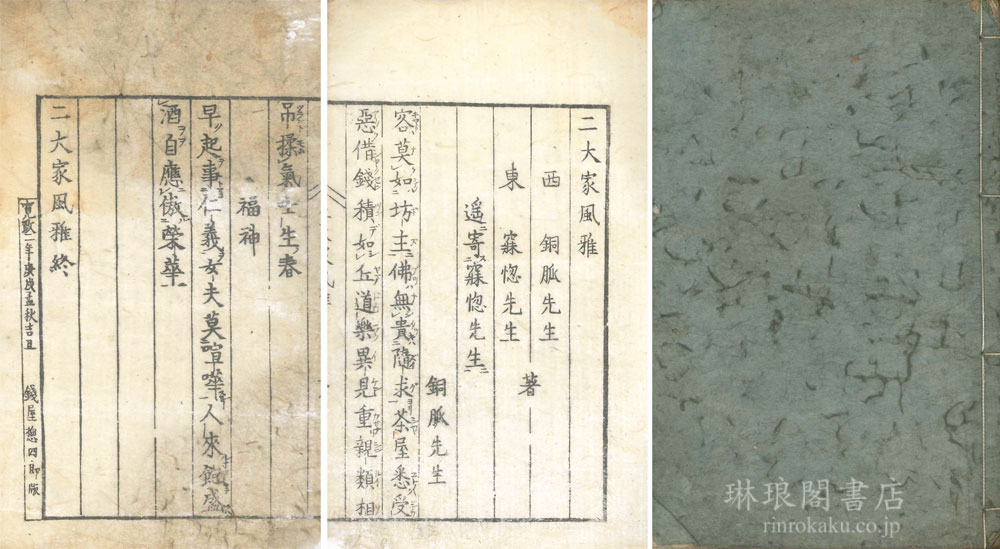 二大家風雅
西 銅脈先生
東 寐惚先生
著
遥寄寐惚先生
銅脈先生
容莫如坊主佛無貴隨求茶屋悉受
惡借錢積如丘道樂異見重親類相
吊揉氣空生春
福神
早起事仁義女夫莫喧嘩人來鉛盛
酒自應傲榮華
二大家風雅終
寛政二年庚戌孟秋吉旦 錢屋惣四郎版
琳琅閣書店
rinrokaku.co.jp